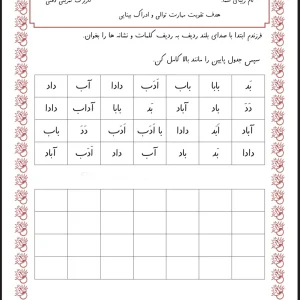 هدف تقویت مهارت توالی و ادراک بینایی
فرزندم ابتدا با صدای بلند ردیف به ردیف کلمات و نشانه ها را بخوان.
سپس جدول پایین را مانند بالا کامل کن.
بَد بابا باب اَدَب دادا آب داد
دَد باد آباد بَد بابا آداب دادا
آباد اَبَد دادا با اَدَب اَدَب دَدَ باب
دادا بَد باد آب داد اَدَب آباد